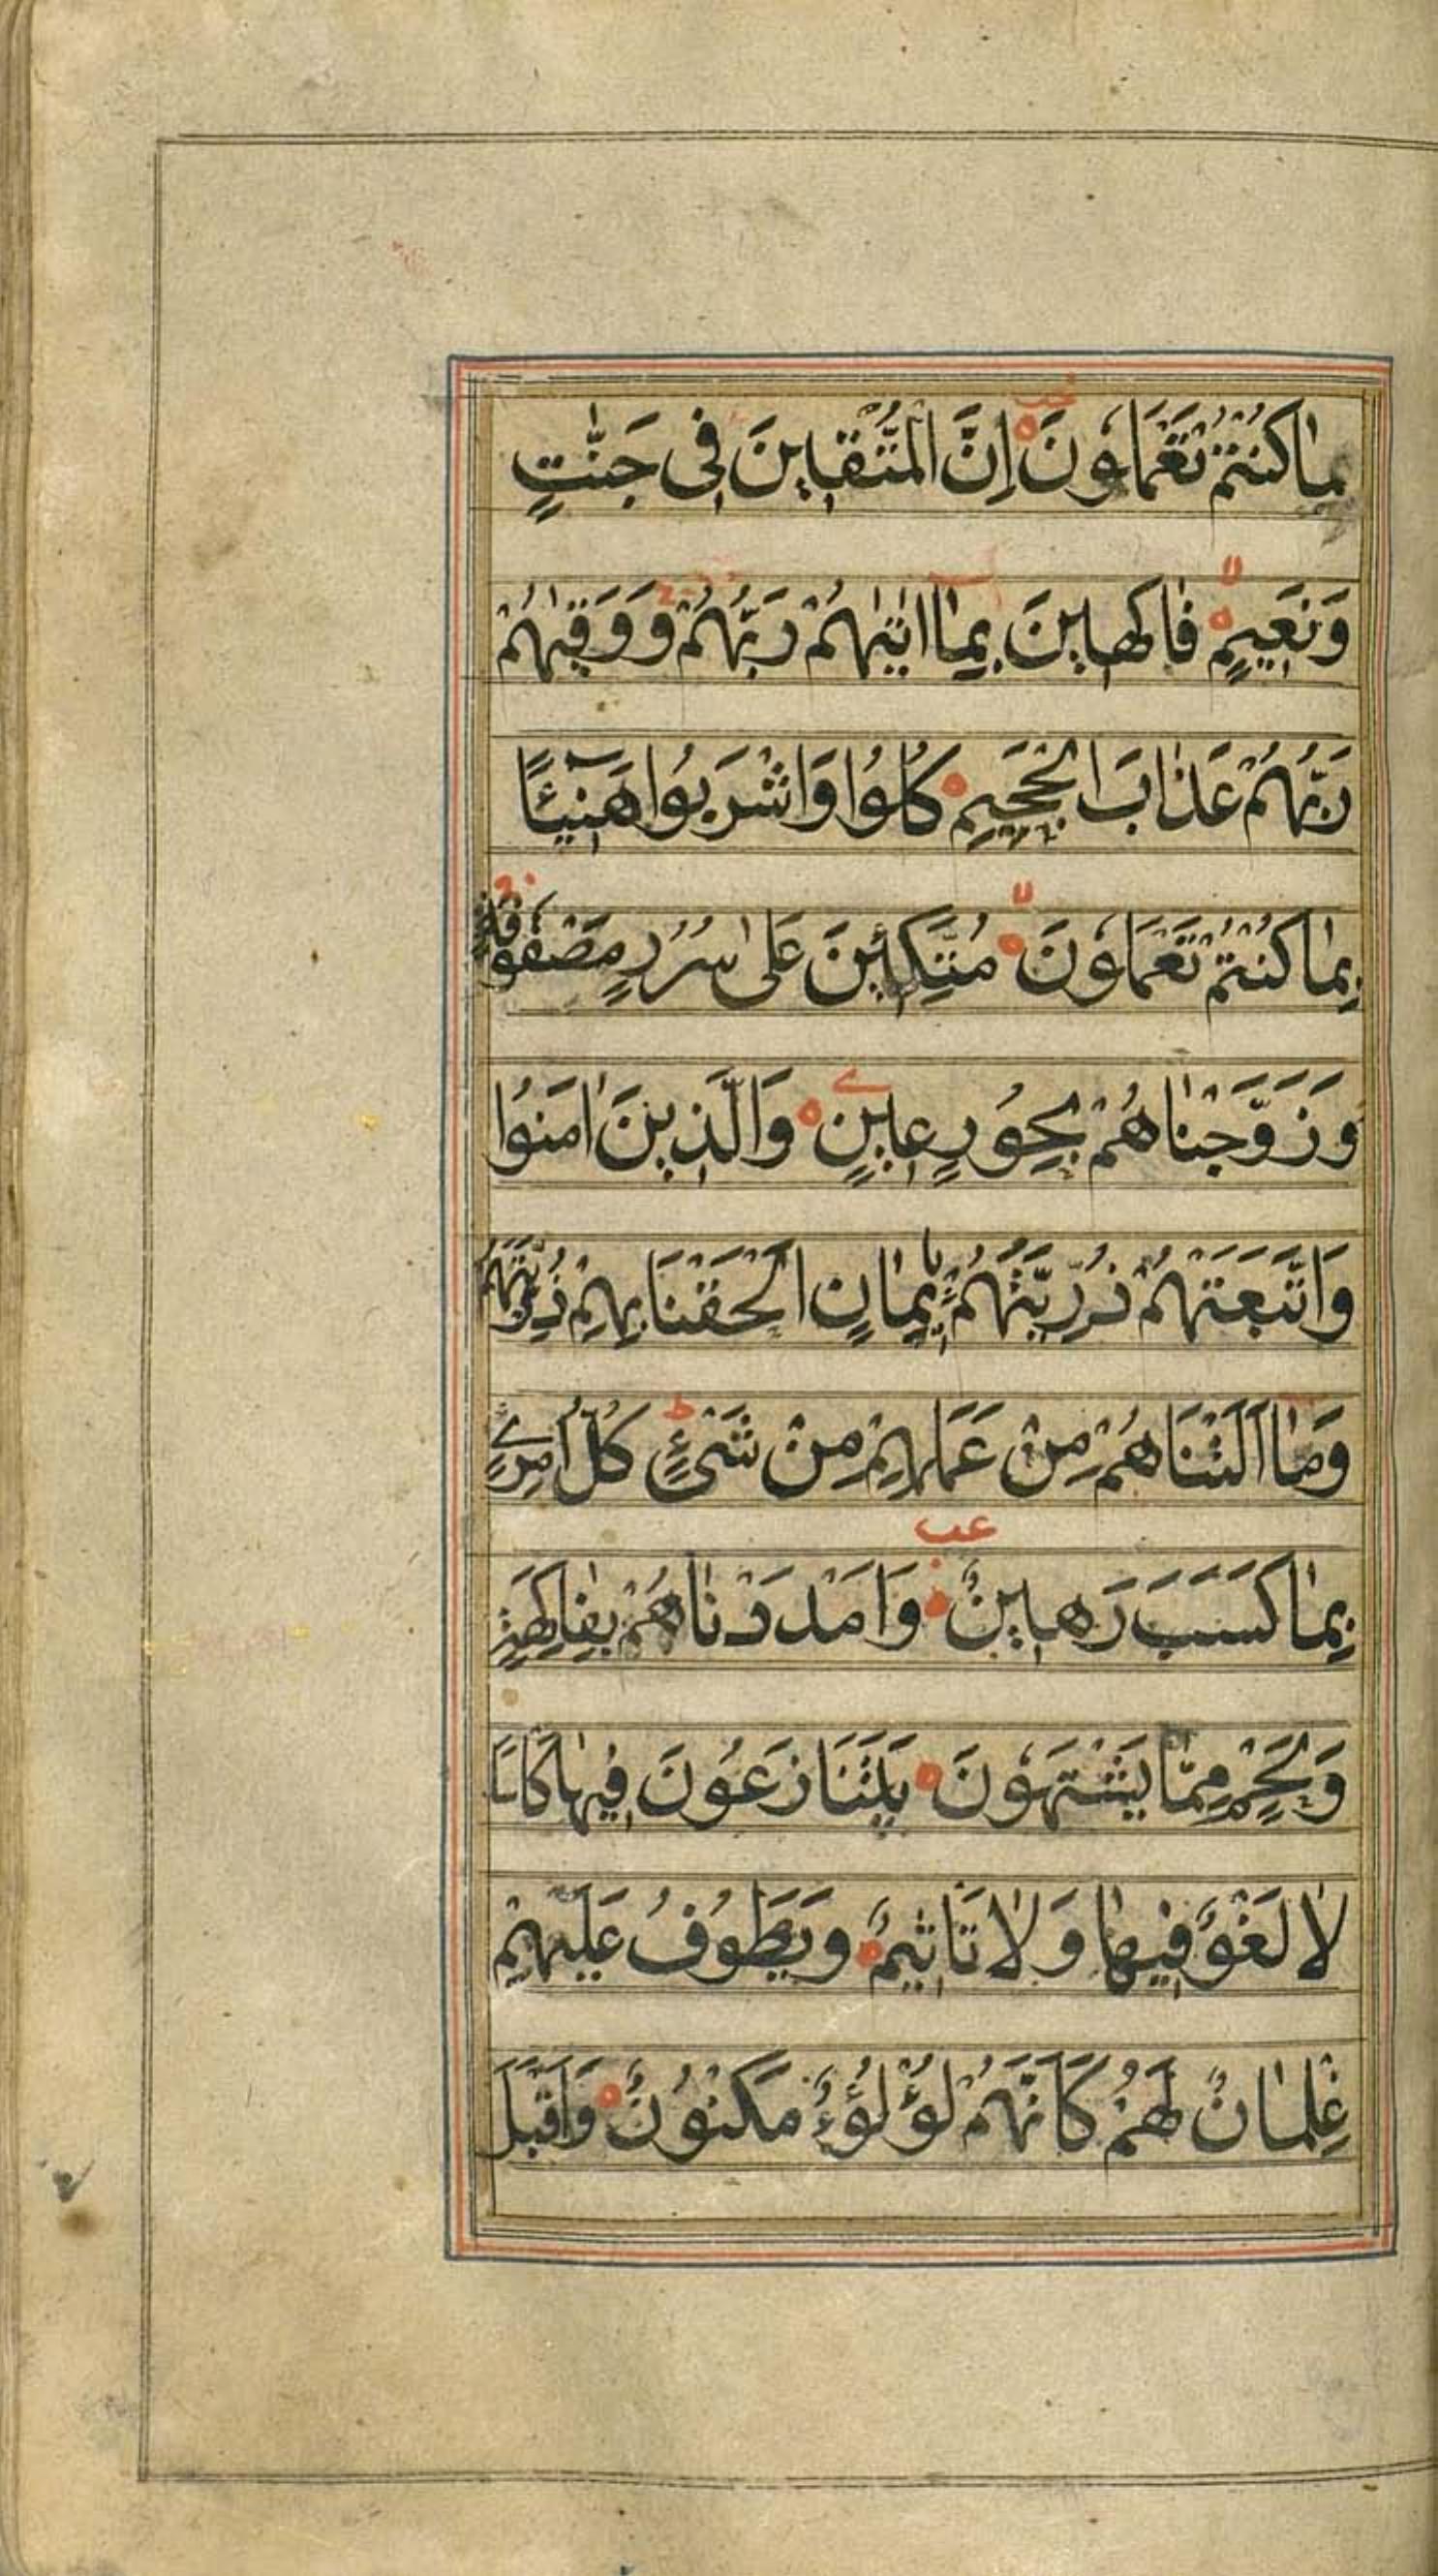 مٰا كُنْتُمْ تَعْمَلُونَ اِنَّ الْمُتَّقٖينَ فٖى جَنّٰتٍ
وَنَعٖيمٍ فٰاكِهٖينَ بِمٰا اٰتٰيهُمْ رَبُّهُمْ وَوَقٰيهُمْ
رَبُّهُمْ عَذٰابَ الْجَحٖيمِ كُلُوا وَاشْرَبُوا هَنٖٓيئًا
بِمٰا كُنْتُمْ تَعْمَلُونَ مُتَّكِئٖينَ عَلٰى سُرُرٍ مَصْفُوفَةٍ
وَزَوَّجْنٰاهُمْ بِحُورٍ عٖينٍ وَالَّذٖينَ اٰمَنُوا
وَاتَّبَعَتْهُمْ ذُرِّيَّتُهُمْ بِاٖيمٰانٍ اَلْحَقْنَا بِهِمْ ذُرِّيَّتَهُمْ
وَمٰا اَلَتْنَاهُمْ مِنْ عَمَلِهِمْ مِنْ شَىْءٍ كُلُّ امْرِئٍ
بِمٰا كَسَبَ رَهٖينٌ وَاَمْدَدْنٰاهُمْ بِفٰاكِهَةٍ
وَلَحْمٍ مِمّٰا يَشْتَهُونَ يَتَنَازَعُونَ فٖيهٰا كَاْسًا
لٰا لَغْوٌ فٖيهٰا وَلٰا تَاْثٖيمٌ وَيَطُوفُ عَلَيْهِمْ
غِلْمٰانٌ لَهُمْ كَاَنَّهُمْ لُؤْلُؤٌ مَكْنُونٌ وَاَقْبَلَ